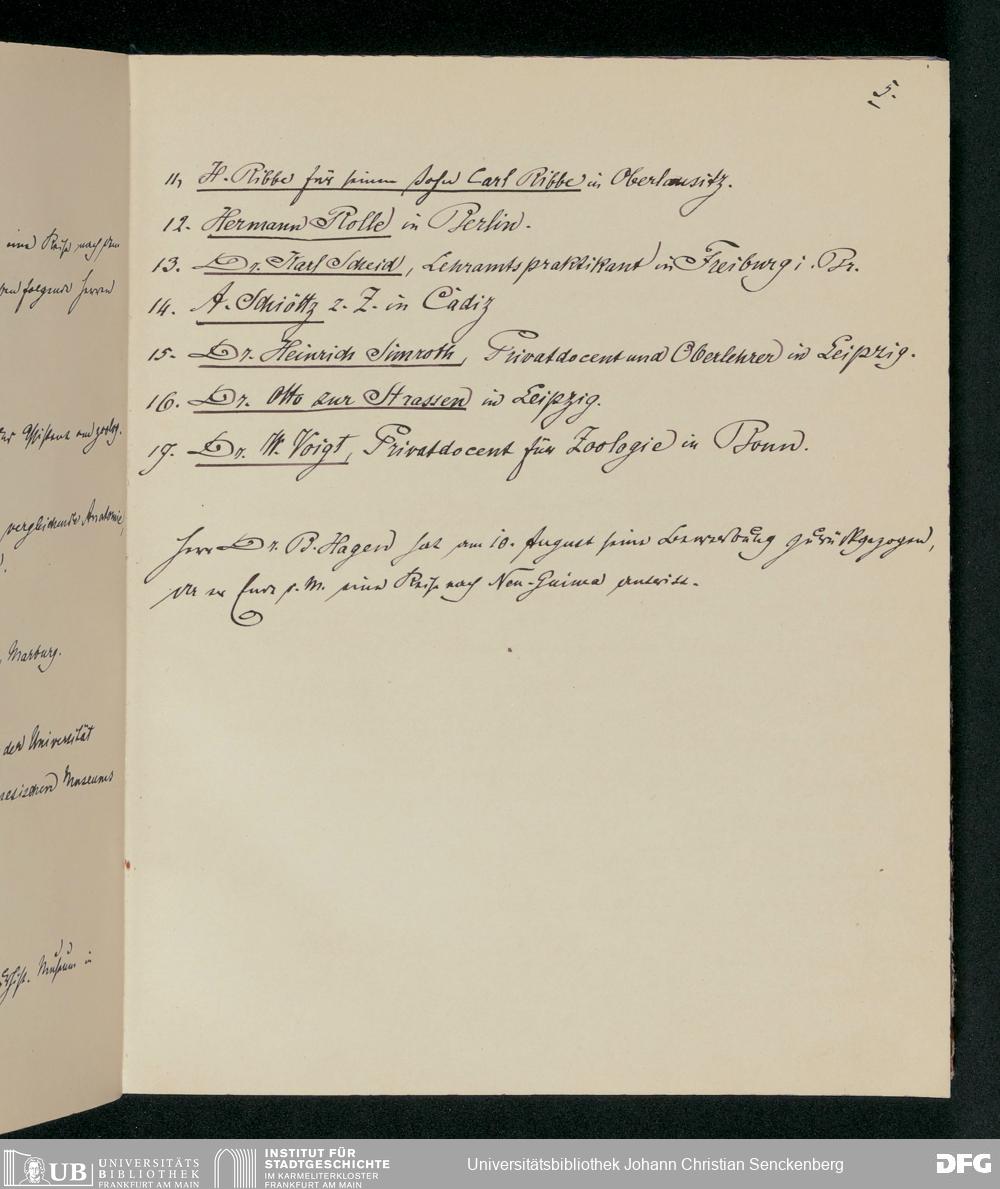 eine Reise nach dem
folgende Herren
Assistent am zoolog.
vergleichende Anatomie,
Marburg.
der Universität
Museums
Museum in
5.
11, H. Ribbe für seinen Sohn Carl Ribbe in Oberlausitz.
12. Hermann Rolle in Berlin.
13. Dr. Karl Scheid, Lehramtspraktikant in Freiburg i. Br.
14. A. Schiöttz z. Z. in Càdiz
15. Dr. Heinrich Simroth, Privatdocent und Oberlehrer in Leipzig.
16. Dr. Otto zur Strassen in Leipzig.
17. Dr. W. Voigt, Privatdocent für Zoologie in Bonn.
Herr Dr. B. Hagen hat am 10. August seine Bewerbung zurückgezogen,
da er Ende d. M. eine Reise nach Neu-Guinea antritt.
UB UNIVERSITÄTS
BIBLIOTHEK
FRANKFURT AM MAIN
INSTITUT FÜR
STADTGESCHICHTE
IM KARMELITERKLOSTER
FRANKFURT AM MAIN
Universitätsbibliothek Johann Christian Senckenberg
DFG